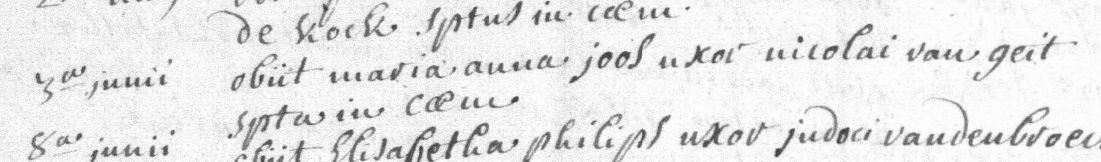 de kock sptus in cæm
3ᵃ junii obiit maria anna joos uxor nicolai van geit
spta in cæm
8ᵃ junii obiit Elisabetha philips uxor judoci vandenbroeck